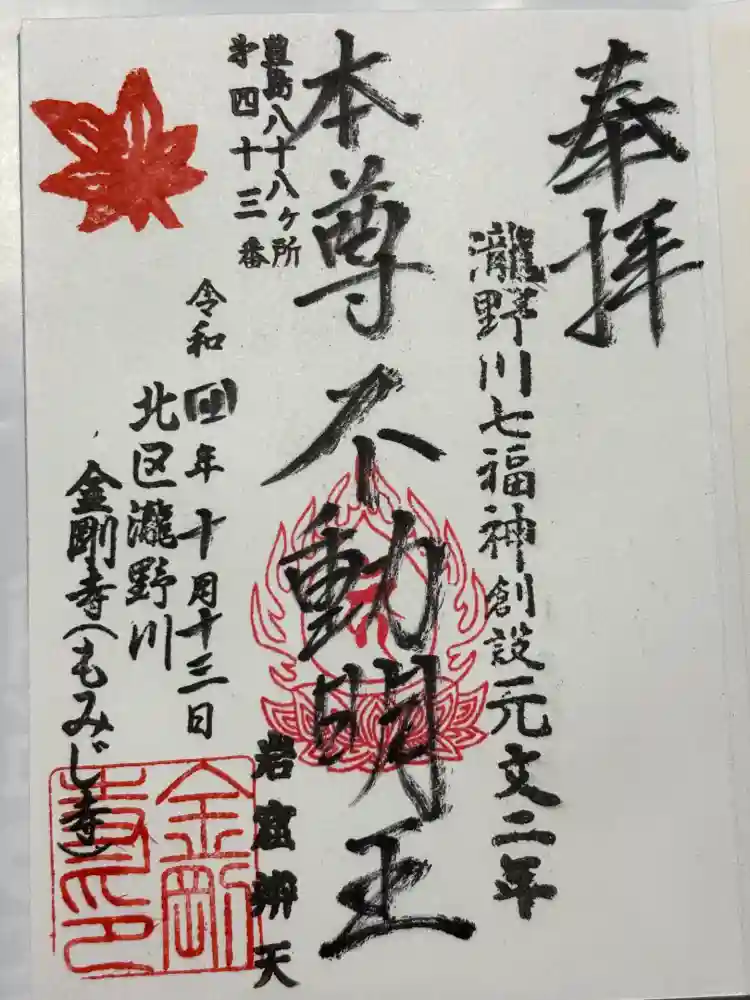 奉拝
瀧野川七福神創設元文二年
本尊不動明王
豊島八十八ヶ所
第四十三番
岩窟辨天
令和四年十月十三日
北区瀧野川
金剛寺(もみじ寺)
金剛
寺印